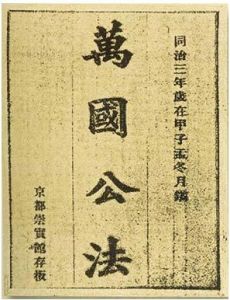 同治三年歲在甲子孟冬月鐫
萬國公法
京都崇實館存板